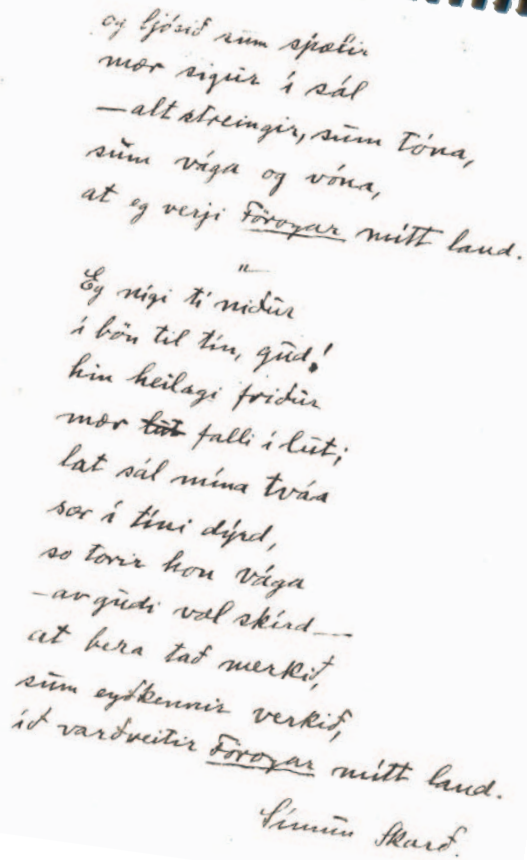 og ljósið sum spælir
mær sigur í sál
— alt streingir, sum tóna,
sum vága og vóna,
at eg verji Föroyar mítt land.
"
Eg nígi tí niður
í bön til tín, gud!
hin heilagi friður
mær lut falli í lut;
lat sál mína tváa
sær í tíni dýrd,
so torir hon vága
— av gudi væl skírd —
at bera tað merkið,
sum eyðkennir verkið,
ið varðveitir Föroyar mítt land.
Símun Skarð.